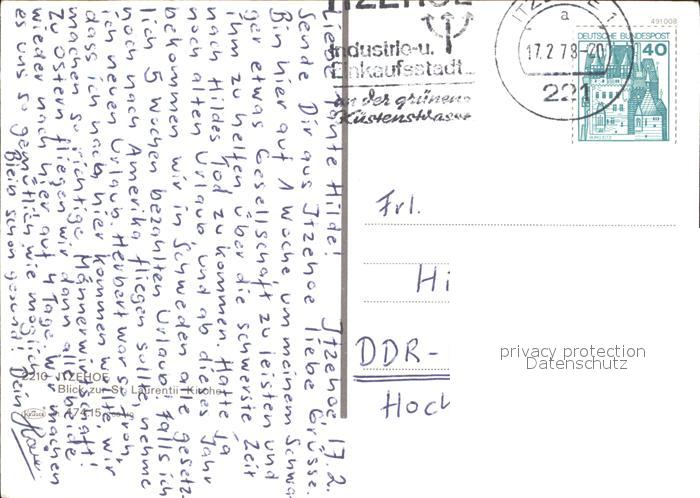 ITZEHOE
Industrie-u.
Einkaufsstadt
an der grünen
Küstenstrasse
ITZEHOE 1
a
17.2.78-20
221
491008
DEUTSCHE BUNDESPOST
40
Itzehoe, 17.2.
Liebe Tante Hilde!
Sende Dir aus Itzehoe liebe Grüsse.
Bin hier auf 1 Woche um meinem Schwa-
ger etwas Gesellschaft zu leisten und
ihm zu helfen über die schwerste Zeit
nach Hildes Tod zu kommen. Hatte ja
noch alten Urlaub, und ab dies Jahr
bekommen wir in Schweden alle gesetz-
lich 5 Wochen bezahlten Urlaub. Falls ich
noch nach Amerika fliegen sollte, nehme
ich neuen Urlaub. Herbert war so froh,
dass ich nach hier kommen wollte, wir
machen so richtige Männerwirtschaft!
Zu Ostern fliegen wir dann alle beide
wieder nach hier auf 4 Tage. Wir machen
es uns so gemütlich wie möglich.
Bleib schön gesund! Dein
2210 ITZEHOE
Blick zur St. Laurentii-Kirche
Krüger
Frl.
Hi
DDR-
Hoch
privacy protection
Datenschutz